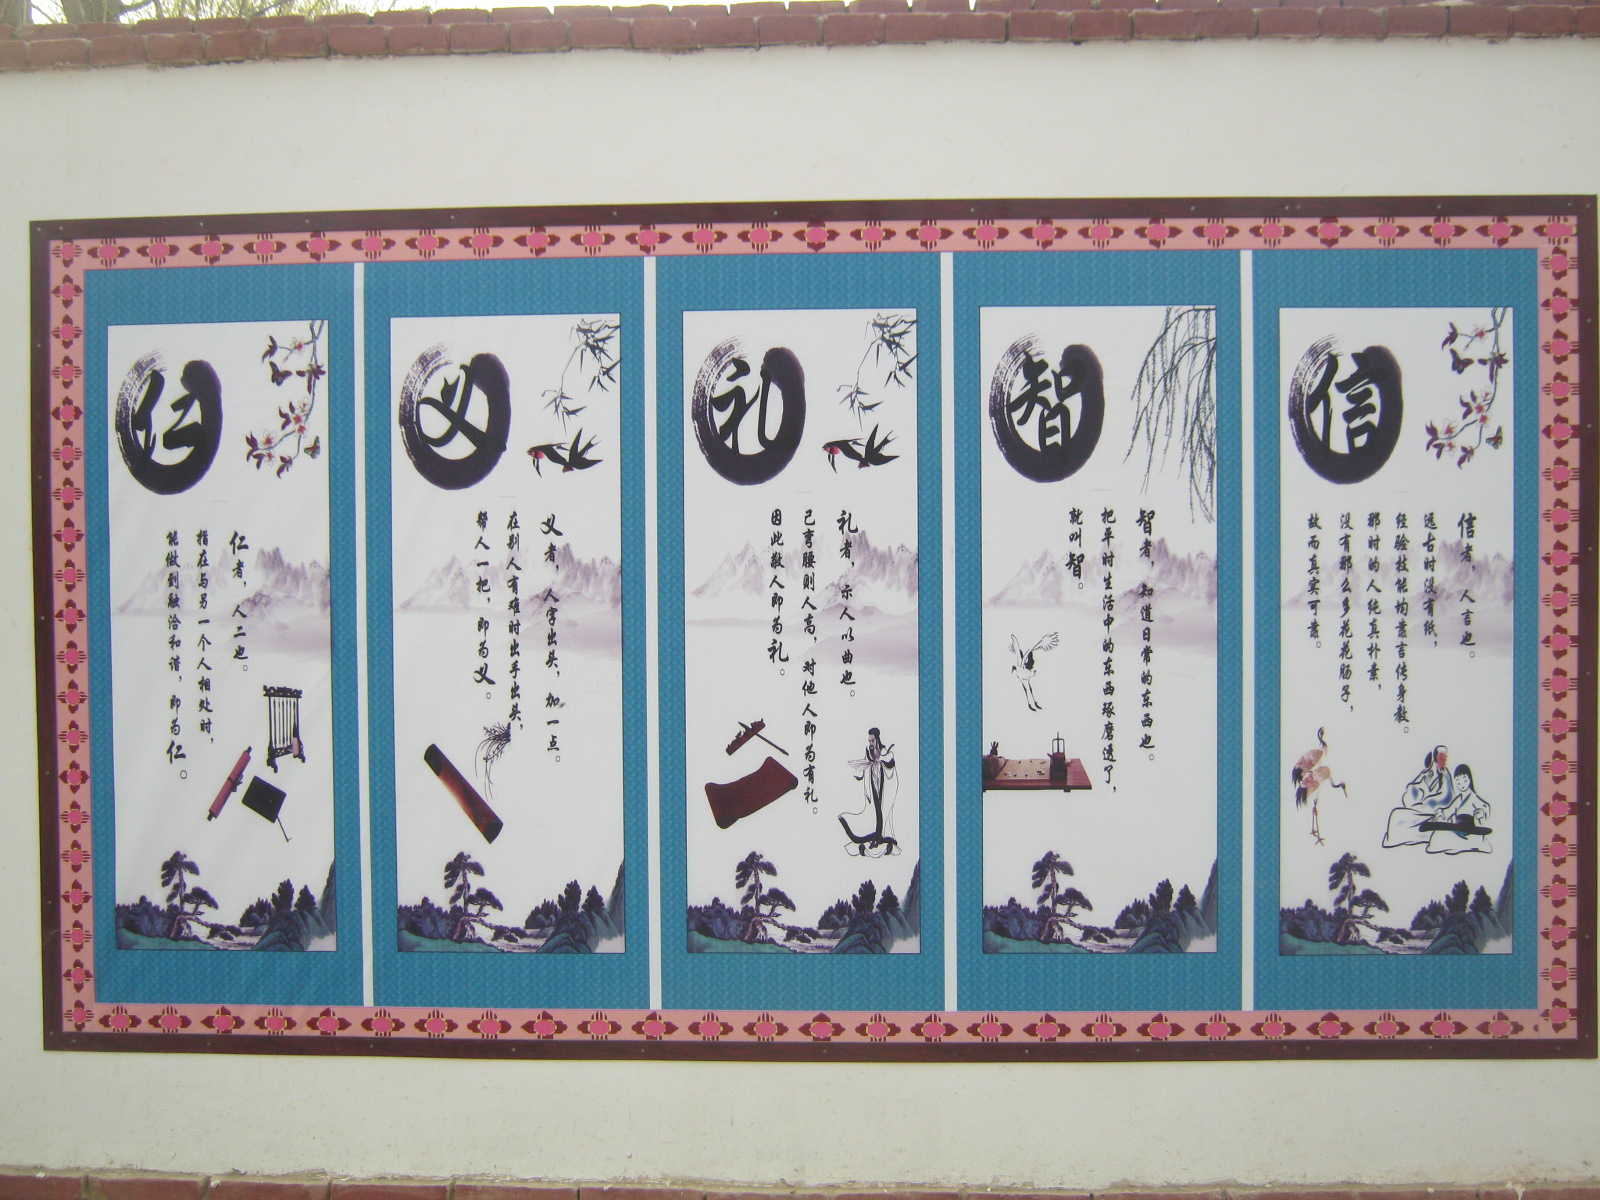 仁
仁者，人二也。
指在与另一个人相处时，
能做到融洽和谐，即为仁。
义
义者，人字出头，加一点。
在别人有难时出手出头，
帮人一把，即为义。
礼
礼者，示人以曲也。
己弯腰则人高，对他人即为有礼。
因此敬人即为礼。
智
智者，知道日常的东西也。
把平时生活中的东西琢磨透了，
就叫智。
信
信者，人言也。
远古时没有纸，
经验技能均靠言传身教。
那时的人纯真朴素，
没有那么多花花肠子，
故而真实可靠。